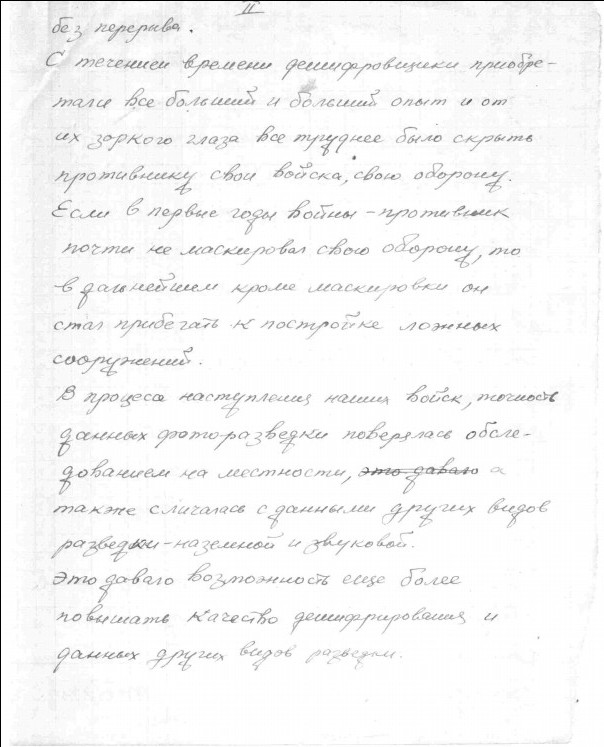 II
без перерыва.
С течением времени дешифровщики приобре-
тали все больший и больший опыт и от
их зоркого глаза все труднее было скрыть
противнику свои войска, свою оборону.
Если в первые годы войны - противник
почти не маскировал свою оборону, то
в дальнейшем кроме маскировки он
стал прибегать к постройке ложных
сооружений.
В процессе наступления наших войск, точность
данных фоторазведки поверялась обсле-
дованием на местности, это давало а
также сличалась с данными других видов
разведки - наземной и звуковой.
Это давало возможность еще более
повышать качество дешифрирования и
данных других видов разведки.